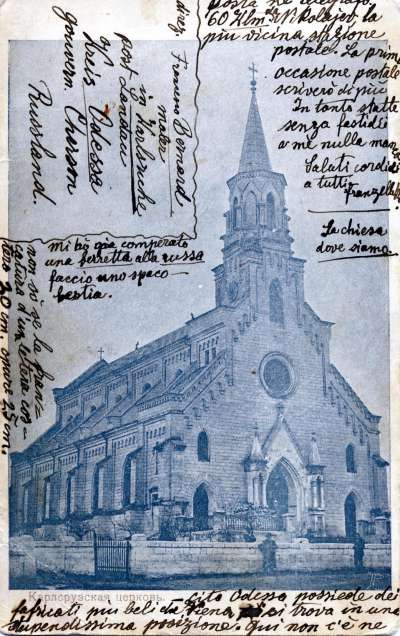 posta ne telegrafo,
60 Klm è Nikolajev, la
più vicina stazione
postale. La prima
occasione postale
scriverò di più
In tanto statte
senza fastidi è
a me nulla man
Saluti cordia
a tutti
Franzelle
La chiesa
dove siamo
Franceso Bernard
maler
in Karlsruhe
post Landau
Kreis Odessa
Gouvern. Cherson
Russland.
mi ho già comperato
una berretta alla russa
faccio uno spaco
bestia.
non so se la
d'un lettera con
40 cm. 25 cm.
Карлсруэская церковь.
cito Odessa possiede dei
fabricati più beli da Viena si trova in una
stupendissima posizione. Qui non c'è ne